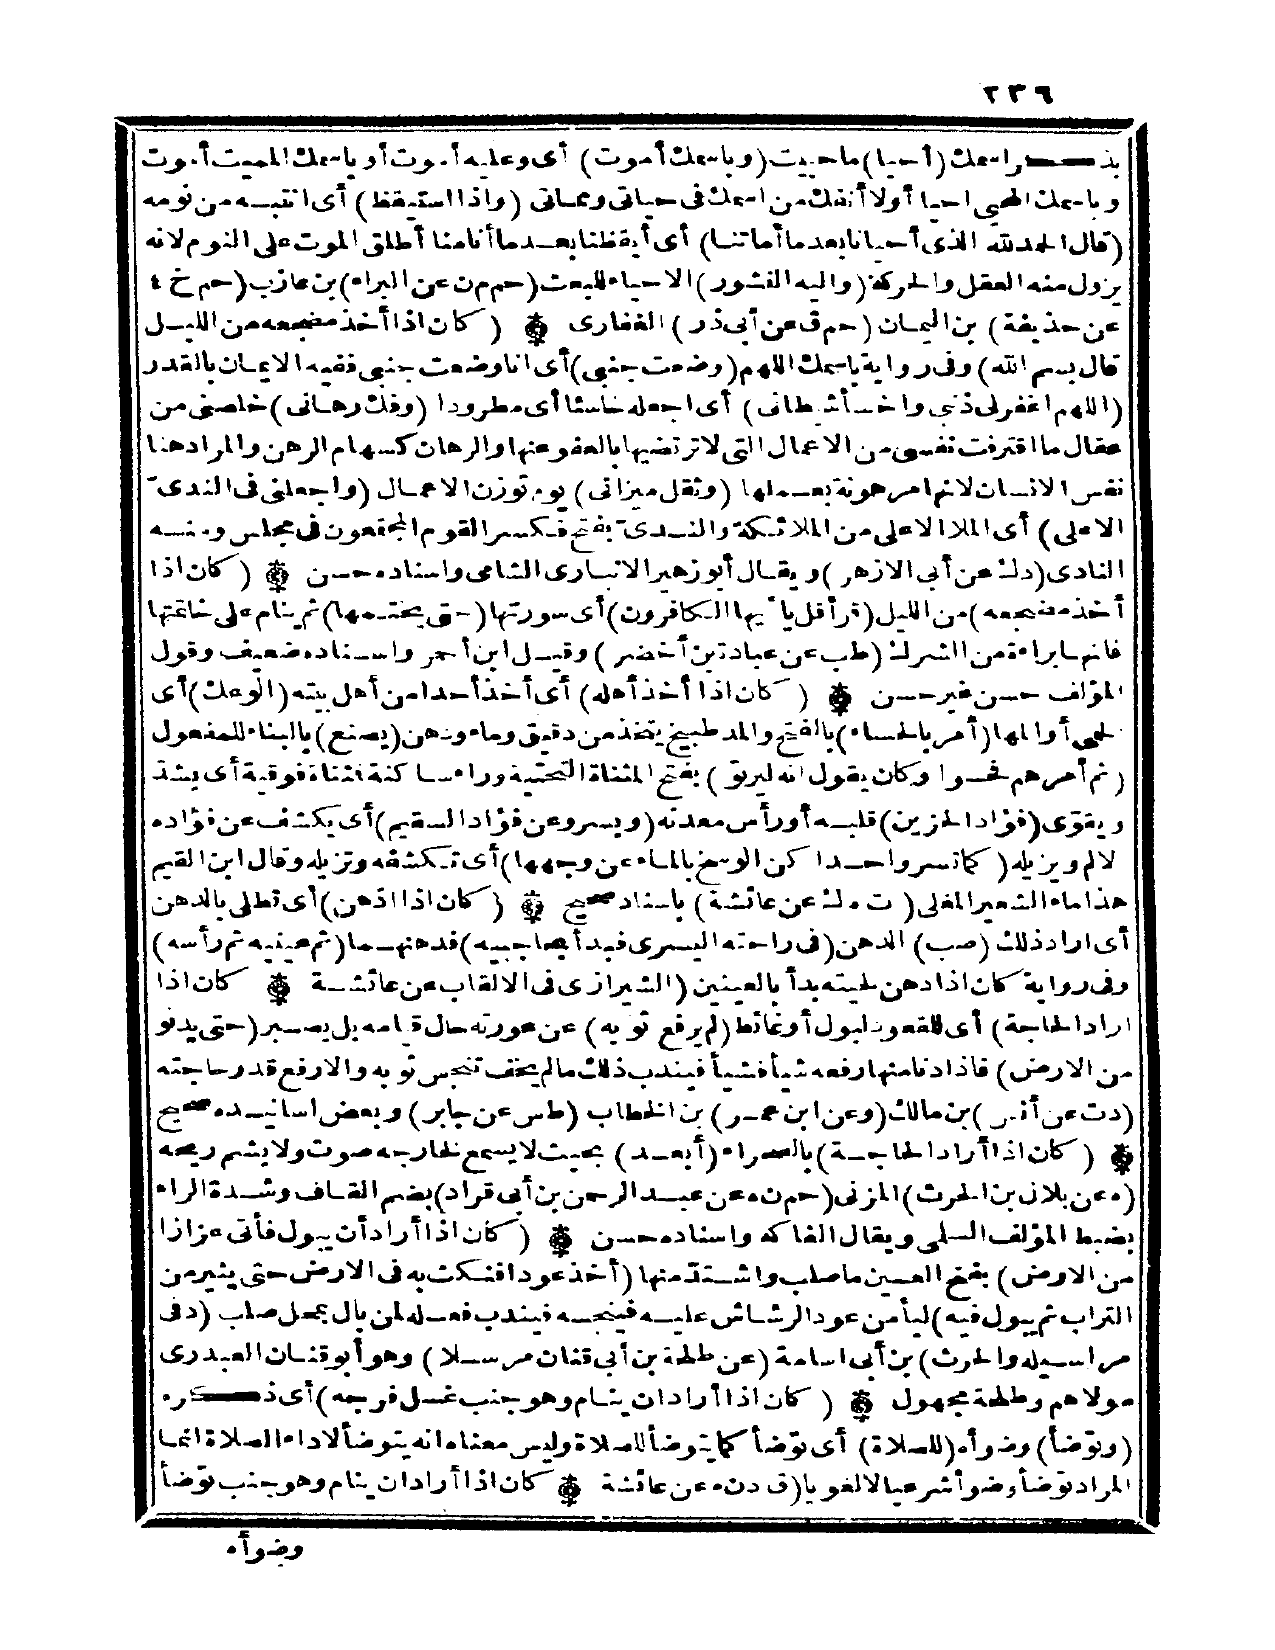 ٢٣٦
بذكر اسمك (أحيا) ما حييت (وباسمك أموت) أى وعليه أموت أو باسمك المميت أموت
وباسمك المحيى احيا أولا أنفك من اسمك فى حياتى ومماتى (واذا استيقظ) أى انتبه من نومه
(قال الحمد لله الذى أحيانا بعد ما أماتنا) أى أيقظنا بعد ما أنامنا أطلق الموت على النوم لانه
يزول منه العقل والحركة (واليه النشور) الاحياء للبعث (حم م ن عن البراء) بن عازب (حم خ ٤
عن حذيفة) بن اليمان (حم ق عن أبى ذر) الغفارى ۞ (كان اذا أخذ مضجعه من الليل
قال بسم الله) وفى رواية باسمك اللهم (وضعت جنبى) أى انا وضعت جنبى ففيه الايمان بالقدر
(اللهم اغفر لى ذنبى واخسأ شيطانى) أى اجعله خاسئا أى مطرودا (وفك رهانى) خلصنى من
عقال ما اقترفت نفسى من الاعمال التى لا ترتضيها بالعفو عنها والرهان كسهام الرهن والمراد هنا
نفس الانسان لانها مرهونة بعملها (وثقل ميزانى) يوم توزن الاعمال (واجعلنى فى الندىّ
الاعلى) أى الملا الاعلى من الملائكة والندىّ بفتح فكسر القوم المجتمعون فى مجلس ومنه
النادى (دك عن أبى الازهر) ويقال أبو زهير الانمارى الشامى واسناده حسن ۞ (كان اذا
أخذ مضجعه) من الليل (قرأ قل يا أيها الكافرون) أى سورتها (حتى يختمها) ثم ينام على خاتمتها
فانها براءة من الشرك (طب عن عباد بن أخضر) وقيل ابن أحمر واسناده ضعيف وقول
المؤلف حسن غير حسن ۞ (كان اذا أخذ أهله) أى أخذ أحدا من أهل بيته (الوعك) أى
الحمى أو ألمها (أمر بالحساء) بالفتح والمد طبيخ يتخذ من دقيق وماء ودهن (يصنع) بالبناء للمفعول
(ثم أمرهم فحسوا وكان يقول انه ليرتو) بفتح المثناة التحتية وراء ساكنة فمثناة فوقية أى يشد
ويقوّى (فؤاد الحزين) قلبه أو رأس معدته (ويسرو عن فؤاد السقيم) أى يكشف عن فؤاده
الالم ويزيله (كما تسرو احداكن الوسخ بالماء عن وجهها) أى تكشفه وتزيله وقال ابن القيم
هذا ماء الشعير المغلى (ت ه ك عن عائشة) باسناد صحيح ۞ (كان اذا ادهن) أى تطلى بالدهن
أى اراد ذلك (صب) الدهن (فى راحته اليسرى فبدأ بحاجبيه) فدهنهما (ثم عينيه ثم رأسه)
وفى رواية كان اذا دهن لحيته بدأ بالعينين (الشيرازى فى الالقاب عن عائشة ۞ كان اذا
اراد الحاجة) أى للقعود لبول أو غائط (لم يرفع ثوبه) عن عورته حال قيامه بل يصبر (حتى يدنو
من الارض) فاذا دنا منها رفعه شيأ فشيأ فيندب ذلك ما لم يخف تنجس ثوبه والا رفع قدر حاجته
(دت عن أنس) بن مالك (وعن ابن عمر) بن الخطاب (طس عن جابر) وبعض اسانيده صحيح
۞ (كان اذا أراد الحاجة) بالصحراء (أبعد) بحيث لا يسمع لخارجه صوت ولا يشم ريحه
(ه عن بلال بن الحرث) المزنى (حم ن ه عن عبد الرحمن بن أبى قراد) بضم القاف وشدة الراء
بضبط المؤلف السلمى ويقال الفاكه واسناده حسن ۞ (كان اذا أراد أن يبول فأتى عزازا
من الارض) بفتح العين ما صلب واشتد منها (أخذ عودا فنكت به فى الارض حتى يثير من
التراب ثم يبول فيه) ليأمن عود الرشاش عليه فينجسه فيندب فعله لمن بال بمحل صلب (د فى
مراسيله والحرث) بن أبى اسامة (عن طلحة بن أبى قنان مرسلا) وهو أبو قنان العبدرى
مولاهم وطلحة مجهول ۞ (كان اذا أراد ان ينام وهو جنب غسل فرجه) أى ذكره
(وتوضأ) وضوأه (للصلاة) أى توضأ كما يتوضأ للصلاة وليس معناه انه يتوضأ لاداء الصلاة انما
المراد توضأ وضوأ شرعيا لا لغويا (ق د ن ه عن عائشة ۞ كان اذا أراد ان ينام وهو جنب توضأ
وضوأه